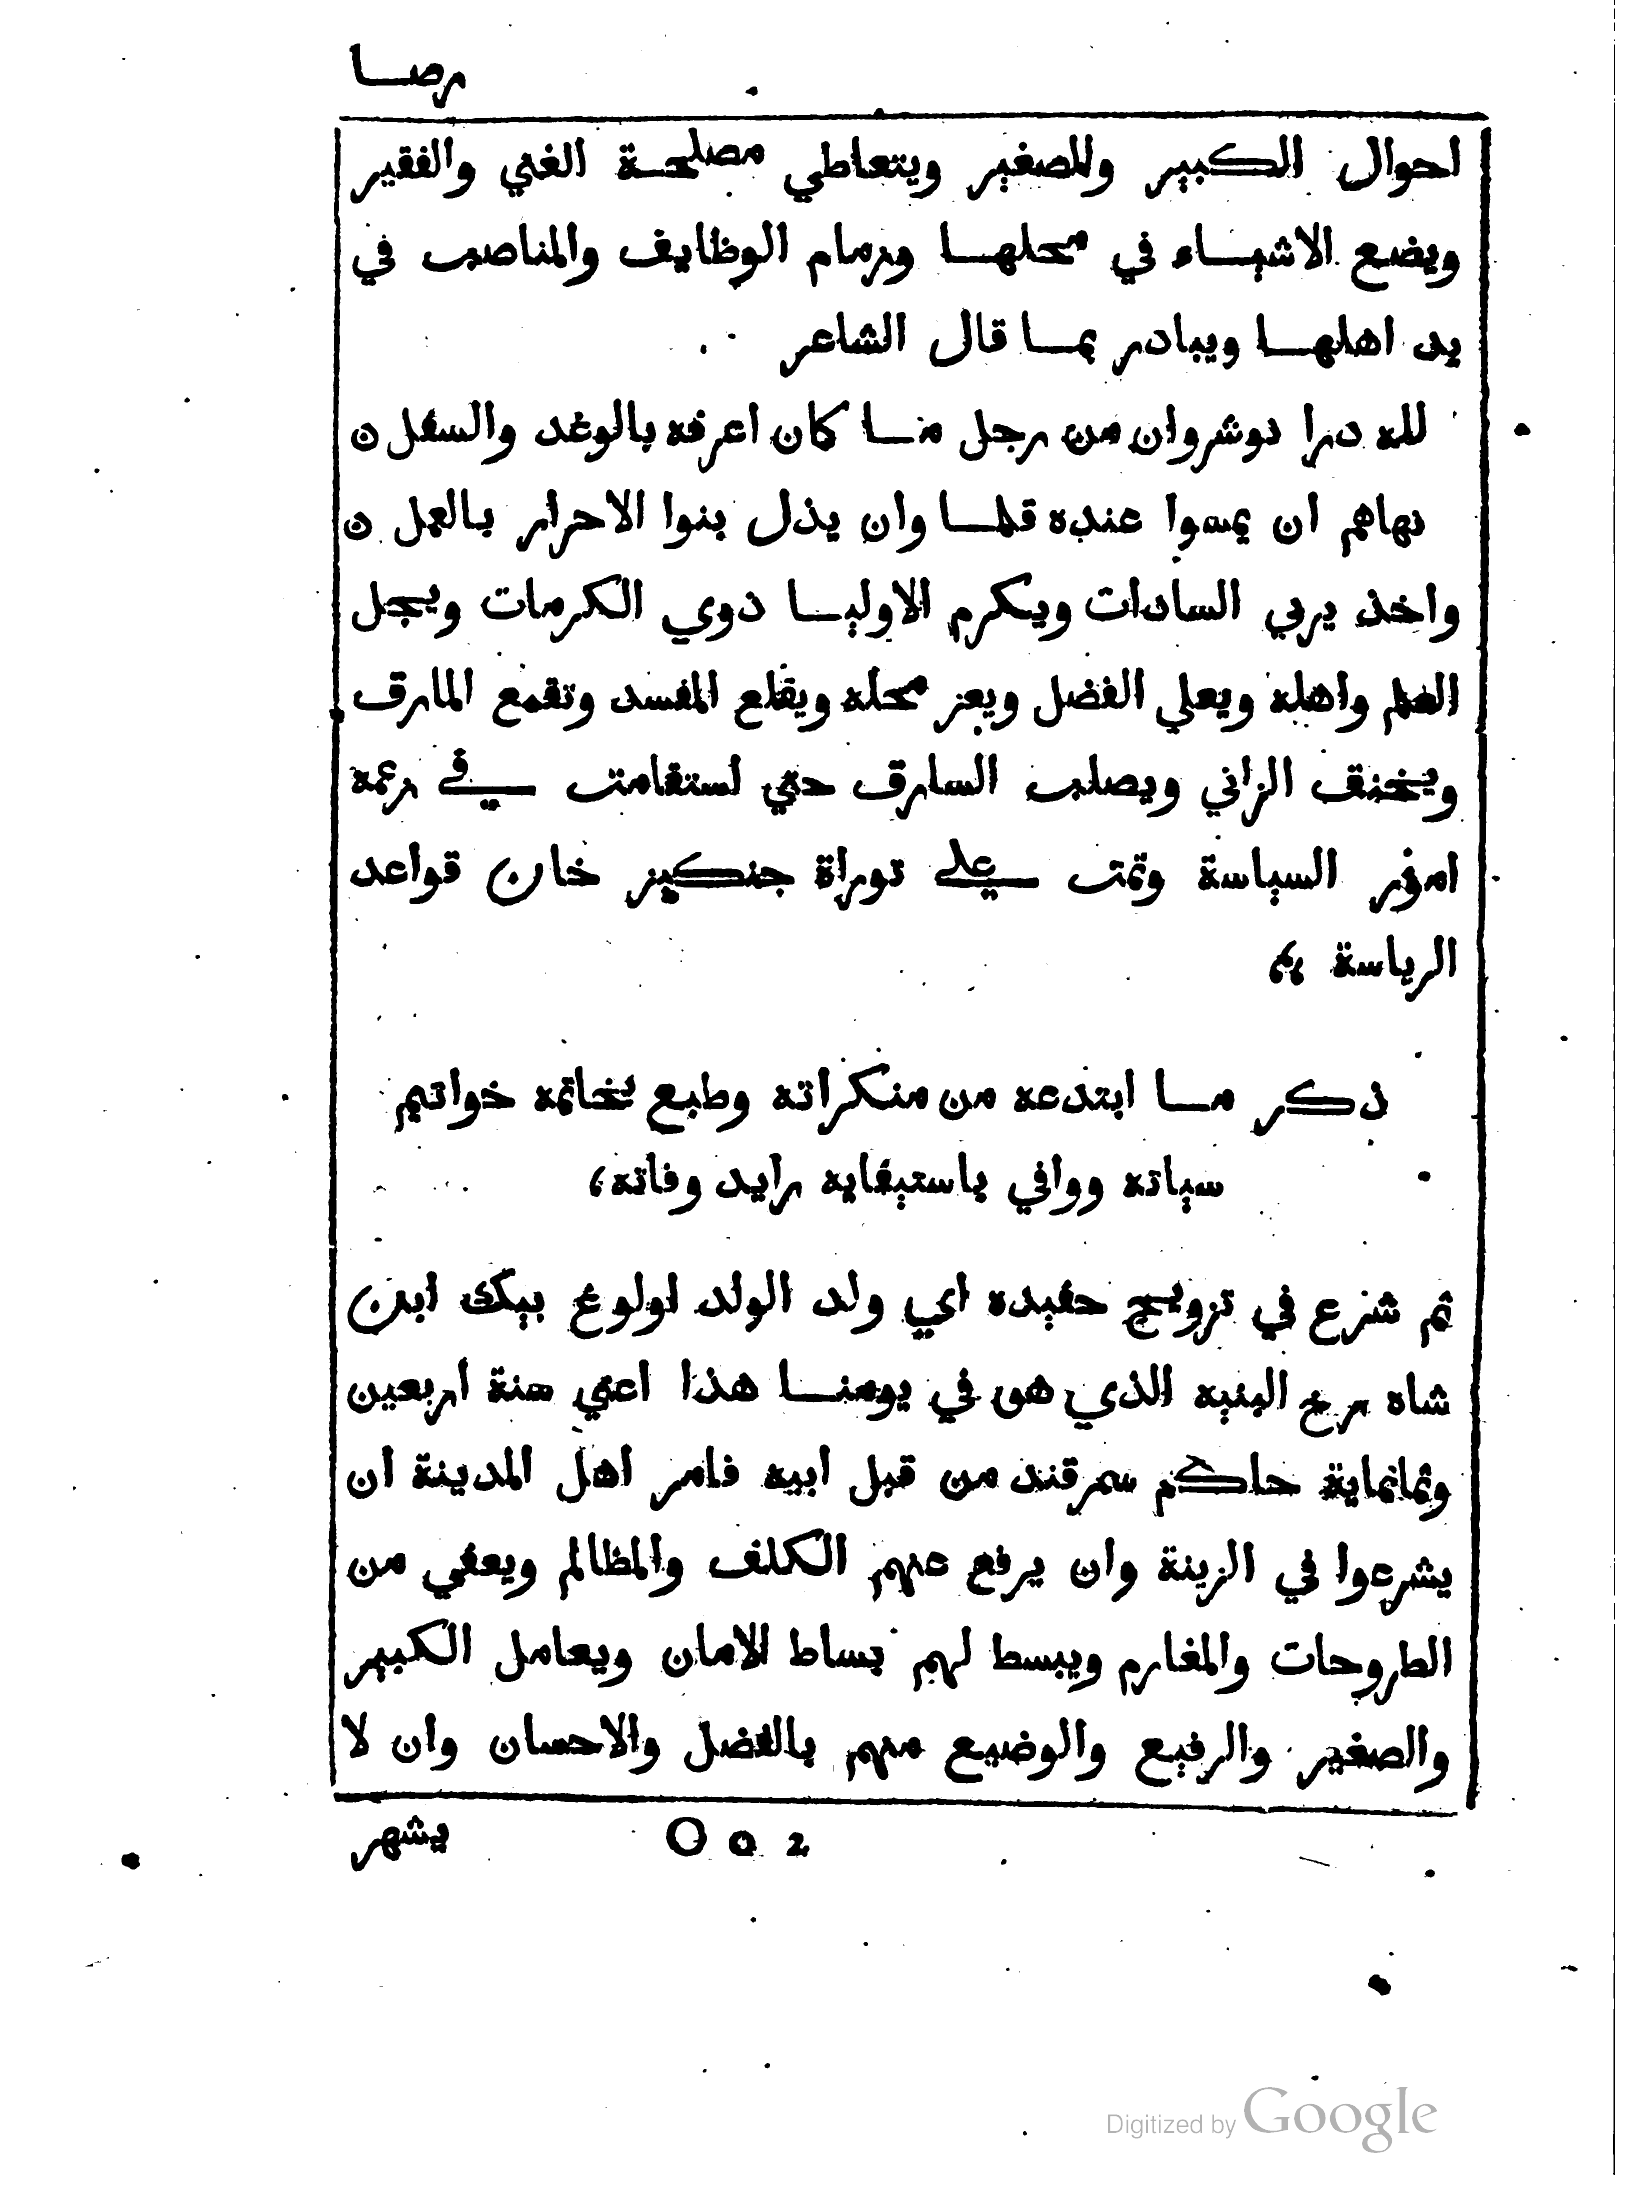 رصا
احوال الكبير والصغير ويتعاطي مصلحة الغني والفقير
ويضع الاشياء في محلها وزمام الوظايف والمناصب في
يد اهلها ويبادر بما قال الشاعر
لله درا نوشروان من رجل ما كان اعرفه بالوغد والسفل ن
نهاهم ان يمسوا عنده قلما وان يذل بنوا الاحرار بالعمل ن
واخذ يربي السادات ويكرم الاوليا ذوي الكرمات ويجل
العلم واهله ويعلي الفضل ويعز محله ويقلع المفسد وتقمع المارق
ويخنق الزاني ويصلب السارق حتي استقامت في زعمه
امور السياسة وتمت علي توراة جنكيز خان قواعد
الرياسة
ذكر ما ابتدعه من منكراته وطبع بخاتمه خواتيم
سياته ووافي باستيفايه رايد وفاته،
ثم شرع في تزويج حفيده اي ولد الولد اولوغ بيك ابن
شاه رخ النبيه الذي هو في يومنا هذا اعني سنة اربعين
وثمانماية حاكم سمرقند من قبل ابيه فامر اهل المدينة ان
يشرعوا في الزينة وان يرفع عنهم الكلف والمظالم ويعفي من
الطروحات والمغارم ويبسط لهم بساط الامان ويعامل الكبير
والصغير والرفيع والوضيع منهم بالفضل والاحسان وان لا
يشهر
Digitized by Google